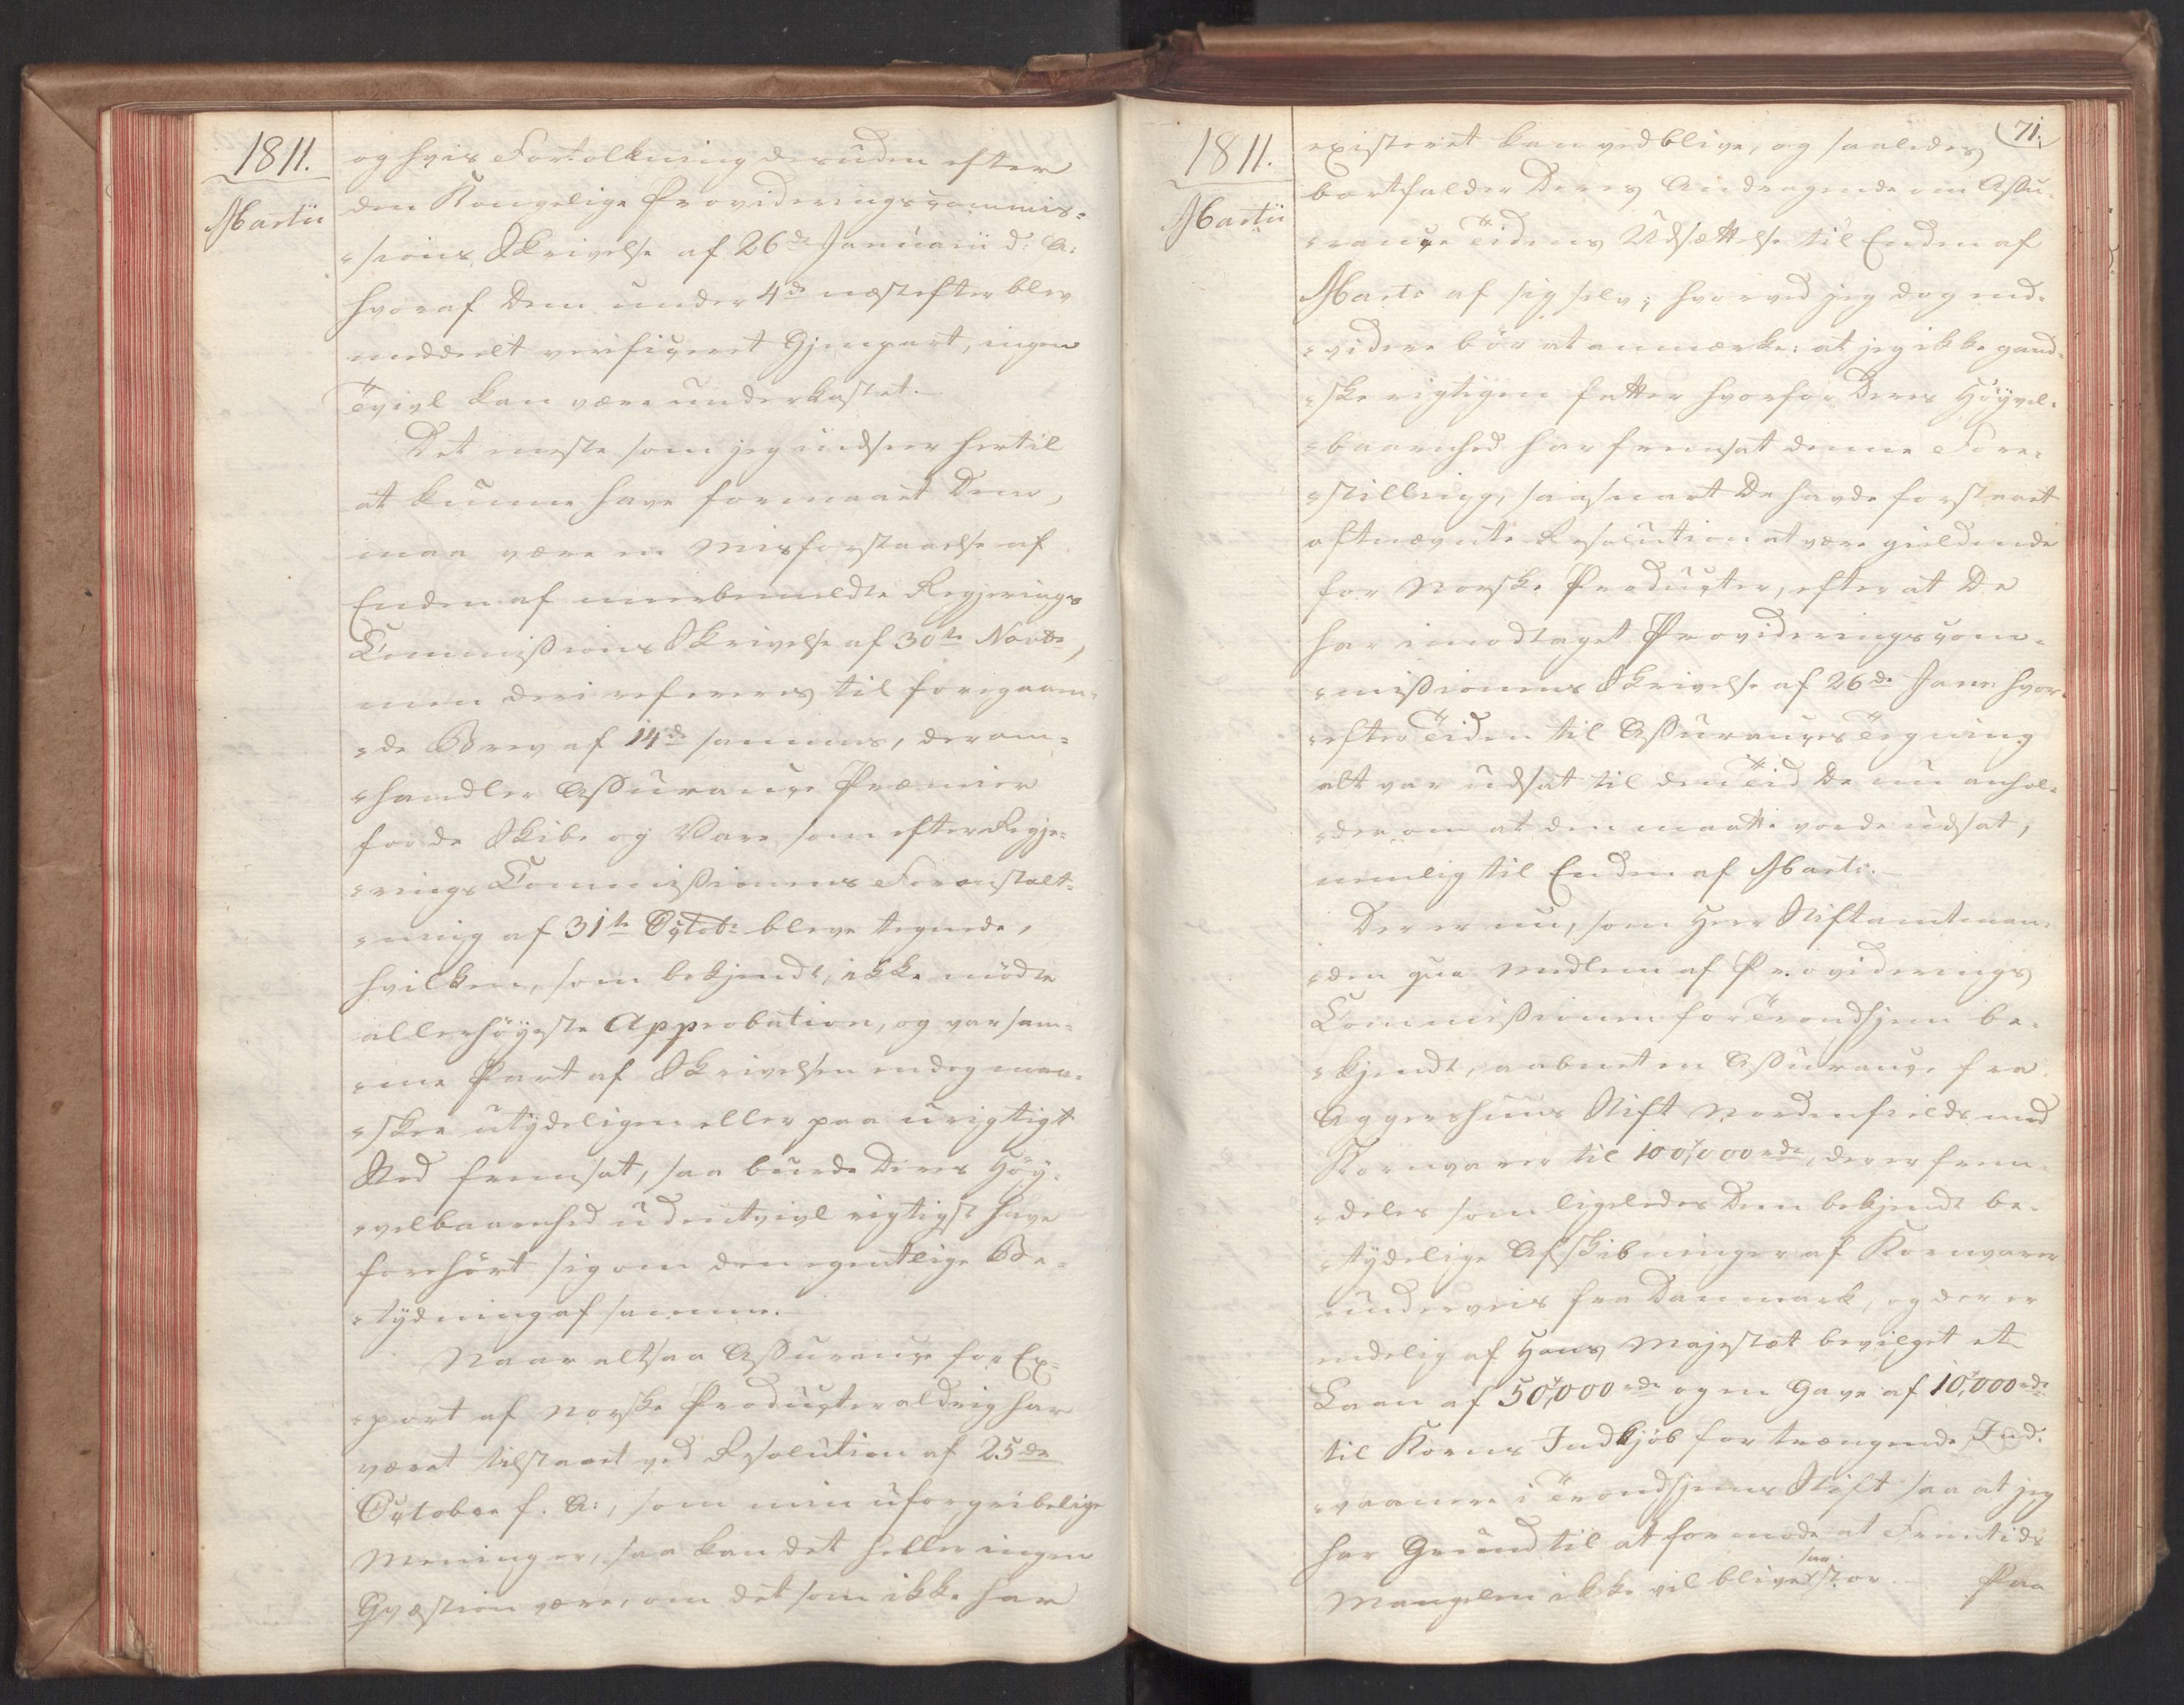 1811.
Martii
og hvis Fortolkning desuden efter
den Kongelige Provideringscommis=
=sions Skrivelse af 26de Januarii d: A:
hvoraf Dem under 4de næstefter blev
meddeelt verificeret Gjenpart, ingen
Tvivl kan være underkastet.
Det meste som jeg indseer hertil
at kunne have formaaet Dem,
maa være en Misforstaaelse af
Enden af meerbemeldte Regjerings
Commissions Skrivelse af 30te Novbr,
men deri refereres til foregaaen=
=de Brev af 14de sammes, der om=
=handler Assurance Præmier
for de Skibe og Vare som efter Regje=
=rings Commissionens Foranstalt=
=ning af 31te Octob: bleve tegnede,
hvilken, som bekjendt, ikke mödte
allerhöyeste Approbation, og var sam=
=me Part af Skrivelsen endog maa=
=skee utydeligen eller paa urigtigt
Sted fremsat, saa burde Deres Höy=
=velbaarenhed udentvivl rigtigst have
forehört sig om den egentlige Be=
=tydning af samme.
Naar altsaa Assurance for Ex=
=port af Norske Producter aldrig har
været tilstaaet ved Resolution af 25de
October f. A:, som min uforgribelige
Mening er, saa kan det heller ingen
Qvæstion være, om det som ikke har
1811.
Martii
71.
existeret kan vedblive, og saaledes
bortfalder Deres Andragende om Assu=
=rance Tidens Udsættelse til Enden af
Marts af sig selv; hvorved jeg dog end=
=videre bör at anmærke: at jeg ikke gand=
=ske rigtigen fatter hvorfor Deres Höyvel=
=baarenhed har fremsat denne Fore=
=stilling, saasnart De havde forstaaet
oftnævnte Resolution at være gieldende
for Norske Producter, efter at De
har imodtaget Provideringscom=
=missionens Skrivelse af 26de Janr: hvor=
=efter Tiden til Assurances Tegning
alt var udsat til den Tid De nu anhol=
=der om at den maatte vorde udsat,
nemlig til Enden af Marts.
Der er nu, som Herr Stiftamtman=
=den qua Medlem af Providerings
Commissionen for Trondhjem be=
=kjendt, aabnet en Assurance fra
Aggershuus Stift Nordenfields med
Kornvarer til 100,000 rdr, der er frem=
=deles som ligeledes Dem bekjendt be=
=tydelige Afskibninger af Kornvarer
underveis fra Danmark, og der er
endelig af Hans Majestæt bevilget et
Laan af 50,000 rdr og en Gave af 10,000 rdr
til Korns Indkjöb for trængende Ind=
=vaanere i Trondhjems Stift saa at jeg
har Grund til at formode at Fremtids
Mangelen ikke vil blive saa stor.
Paa